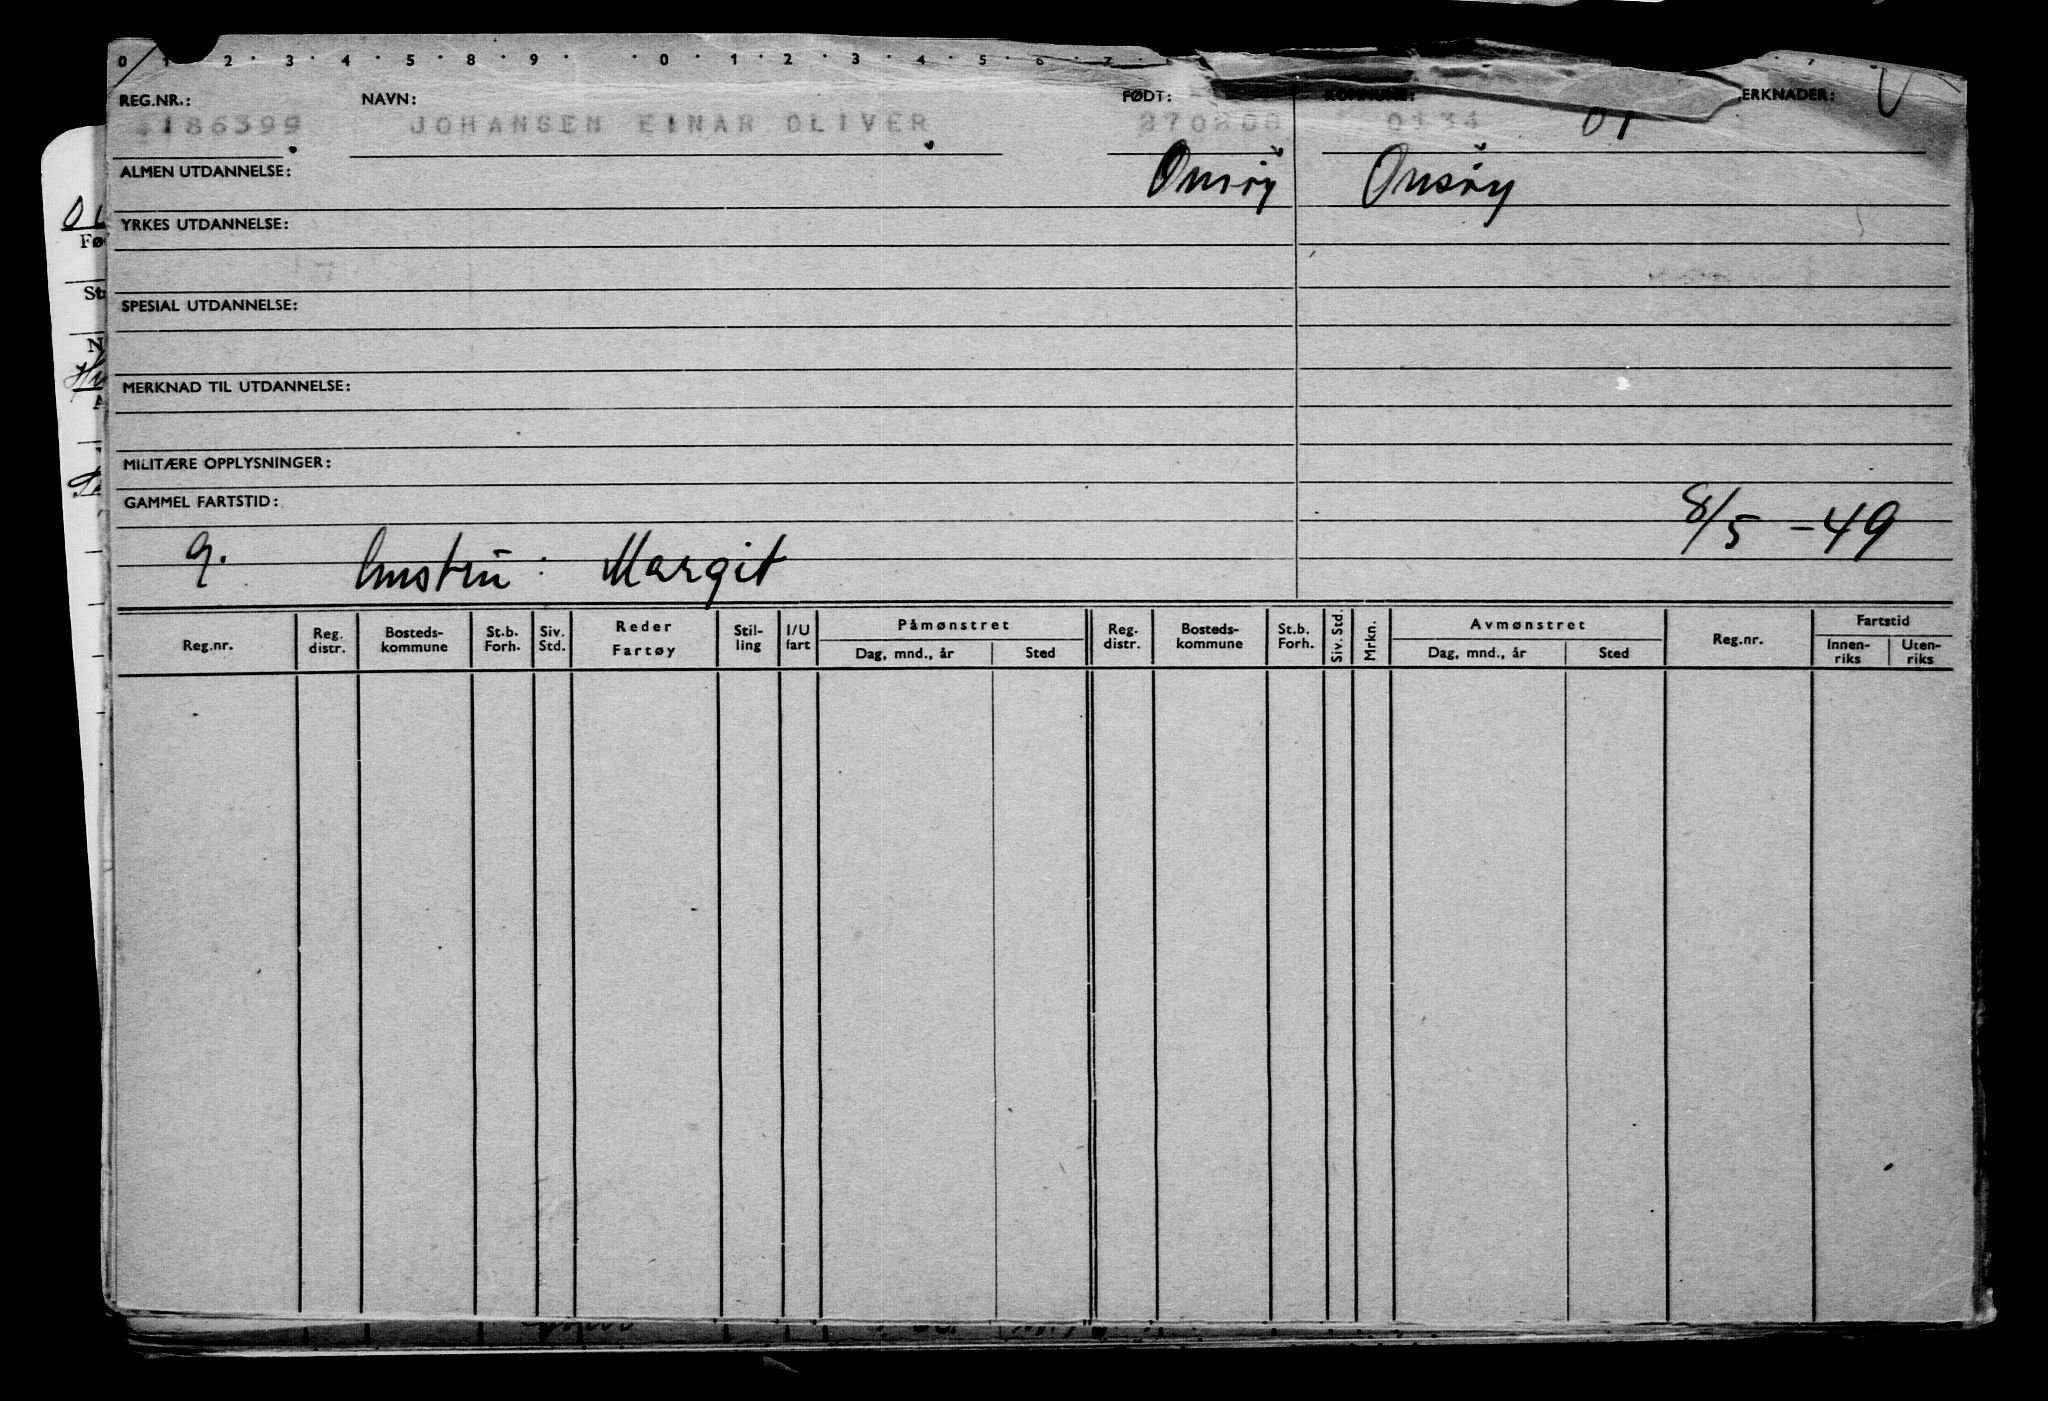 0 1 2 3 4 5 8 9 0 1 2 3 4 5 6 7
REG.NR.: NAVN: FØDT: KOMMUNE: ERKNADER:
186399 JOHANSEN EINAR OLIVER 270808 0134 01
ALMEN UTDANNELSE: Onsøy Onsøy
YRKES UTDANNELSE:
SPESIAL UTDANNELSE:
MERKNAD TIL UTDANNELSE:
MILITÆRE OPPLYSNINGER:
GAMMEL FARTSTID: 8/5 -49
g. hustru: Margit
Reg.nr. Reg. distr. Bosteds- kommune St.b. Forh. Siv. Std. Reder Fartøy Stil- ling I/U fart Påmønstret Dag, mnd., år Sted Reg. distr. Bosteds- kommune St.b. Forh. Siv. Std. Mrkn. Avmønstret Dag, mnd., år Sted Reg.nr. Fartstid Innen- riks Uten- riks